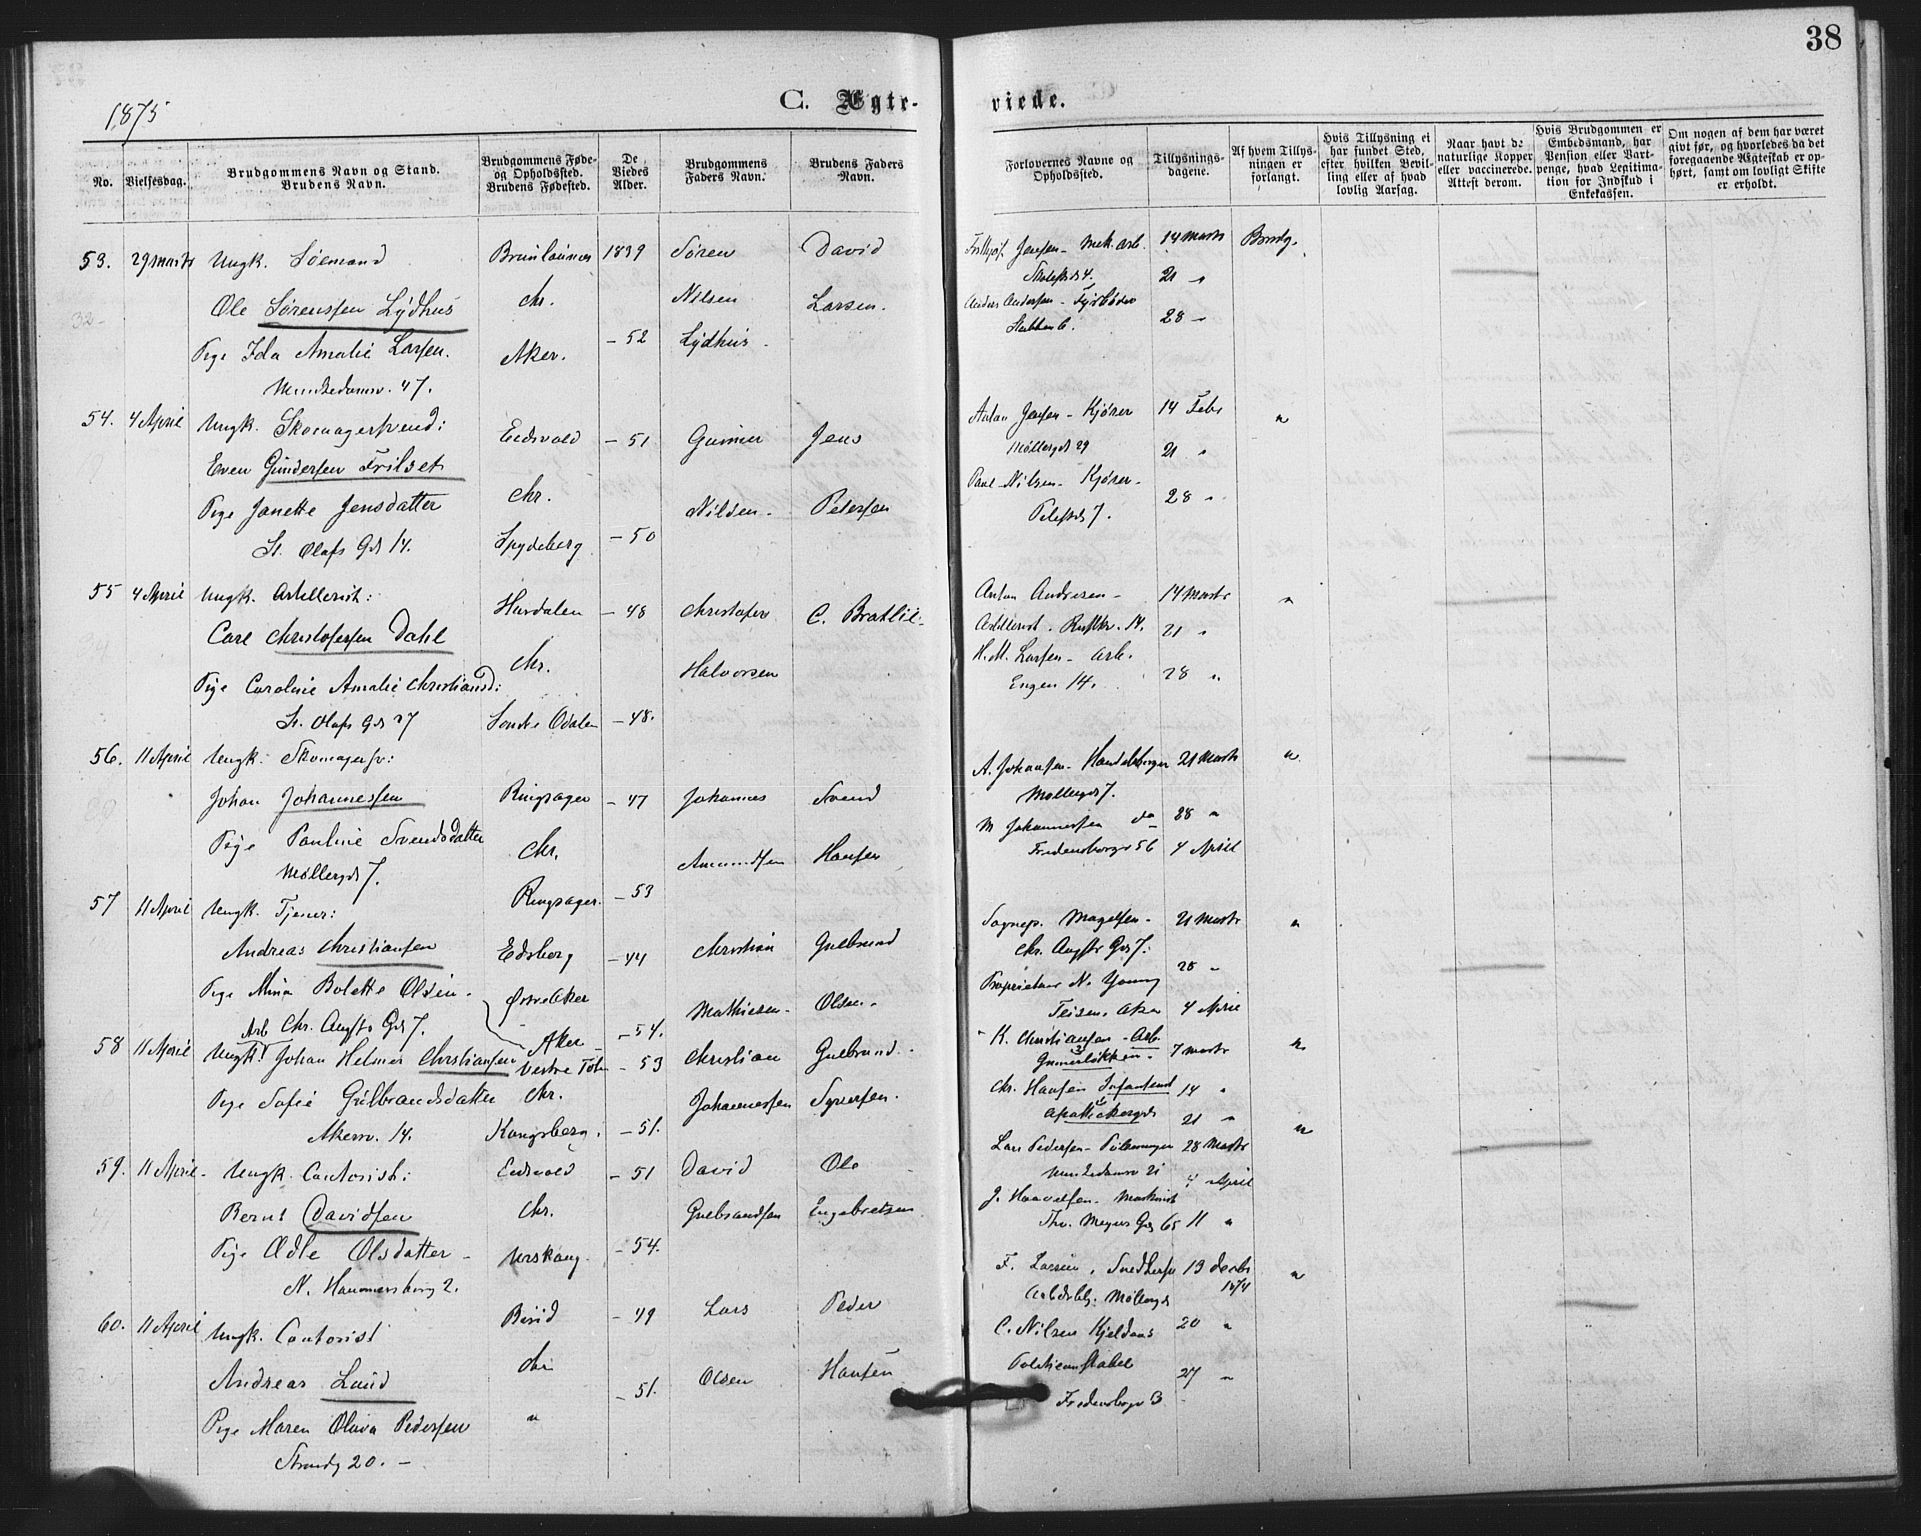 38
1875
C. Ægte- viede.
No.
Vielsesdag.
Brudgommens Navn og Stand.
Brudens Navn.
Brudgommens Føde-
og Opholdssted.
Brudens Fødested.
De
Viedes
Alder.
Brudgommens
Faders Navn.
Brudens Faders
Navn.
Forlovernes Navne og
Opholdssted.
Tillysnings-
dagene.
Af hvem Tillys-
ningen er
forlangt.
Hvis Tillysning ei
har fundet Sted,
efter hvilken Bevil-
ling eller af hvad
lovlig Aarsag.
Naar havt de
naturlige Kopper
eller vaccinerede.
Attest derom.
Hvis Brudgommen er
Embedsmand, har
Pension eller Vart-
penge, hvad Legitima-
tion for Indskud i
Enkekassen.
Om nogen af dem har været
givt før, og hvorledes da det
foregaaende Ægteskab er op-
hørt, samt om lovligt Skifte
er erholdt.
53. 29 Marts Ungk. Sømand Brunlaunes 1839 Søren David
Ole Sørenssen Lydhus Chr. Nilsen Larsen.
Pige Ida Amalie Larsen. Aker. - 52 Lydhus.
Munkedamsv. 47.
Jensen - Mek. arb. 14 Marts Brudg.
21 "
Anders Andersen - Fyrbøder
28 "
54. 4 April Ungk. Skomagersvend: Eidsvold - 51 Gunner Jens
Even Gundersen Frilset Chr. Nilsen - Petersen
Pige Janette Jensdatter
St. Olafs Gd 14. Spydeberg - 50
Anton Jensen - Kjører 14 Febr "
Møllergd 29 21 "
Paul Nilsen - Kjører - 28 "
Pilestd 7.
55 4 April Ungk. Artillerist: Hurdalen - 48 Christofer C. Bratlie -
Carl Christofersen Dahl Chr. Halvorsen
Pige Caroline Amalie Christiansd:
St. Olafs Gd 27 Søndre Odalen - 48.
Anton Andresen - 14 Marts "
Artillerist. 14. 21 "
H. M. Larsen - Arb. 28 "
Engen 14.
56. 11 April Ungk. Skomagersv:
Johan Johannessen Ringsager - 47 Johannes Svend
Pige Pauline Svendsdatter Chr. Amundsen Hansen
Møllergd 7. Ringsager. - 53
A. Johansen - Handelsborger 21 Marts "
Møllergd 7.
M Johannessen do 28 "
Fredensborgv 56 4 April
57 11 April Ungk. Tjener:
Andreas Christiansen Edsberg - 44 Christian Gulbrand
Pige Mina Bolette Olsen - Østre Aker Mathiesen - Olsen -
Chr. Augsts Gd 7. Aker - 54.
Sognepr. Magelsen - 21 Marts "
Chr. Augsts Gd 7. 28 "
Proprietær N. Young
Teisen, Aker 4 April
58 11 April Arb Ungk. Johan Helmer Christiansen Vestre Toten - 53 Christian Gulbrand -
Pige Sofie Gulbrandsdatter Chr. Johannessen Syversen.
Akersv. 14. Kongsberg. - 51.
K. Christiansen - Arb. 7 Marts "
Grünerløkken.
Chr. Hansen Infanterist 14 "
21 "
59. 11 April - Ungk. Contorist: Eidsvold - 51 David Ole
Bernt Davidsen Chr. Gulbrandsen Engebretsen
Pige Ædle Olsdatter - Urskoug - 54.
N. Hammersborg 2.
Lars Pedersen - 28 Marts "
Munkedamsv 21 4 April
J. Haavelsen - Maskinist
Thv. Meyers Gd 65 11 "
60. 11 April Ungk. Contorist Birid - 49 Lars Peder
Andreas Lund Chr Olsen Hansen
Pige Maren Oliva Pedersen " - 51.
Strandg 20. -
F. Larsen, 13 Decbr 1874 "
Møllergd
C. Nilsen Kjeldaas 20 "
Politiconstabel 27 "
Fredensborgv 3